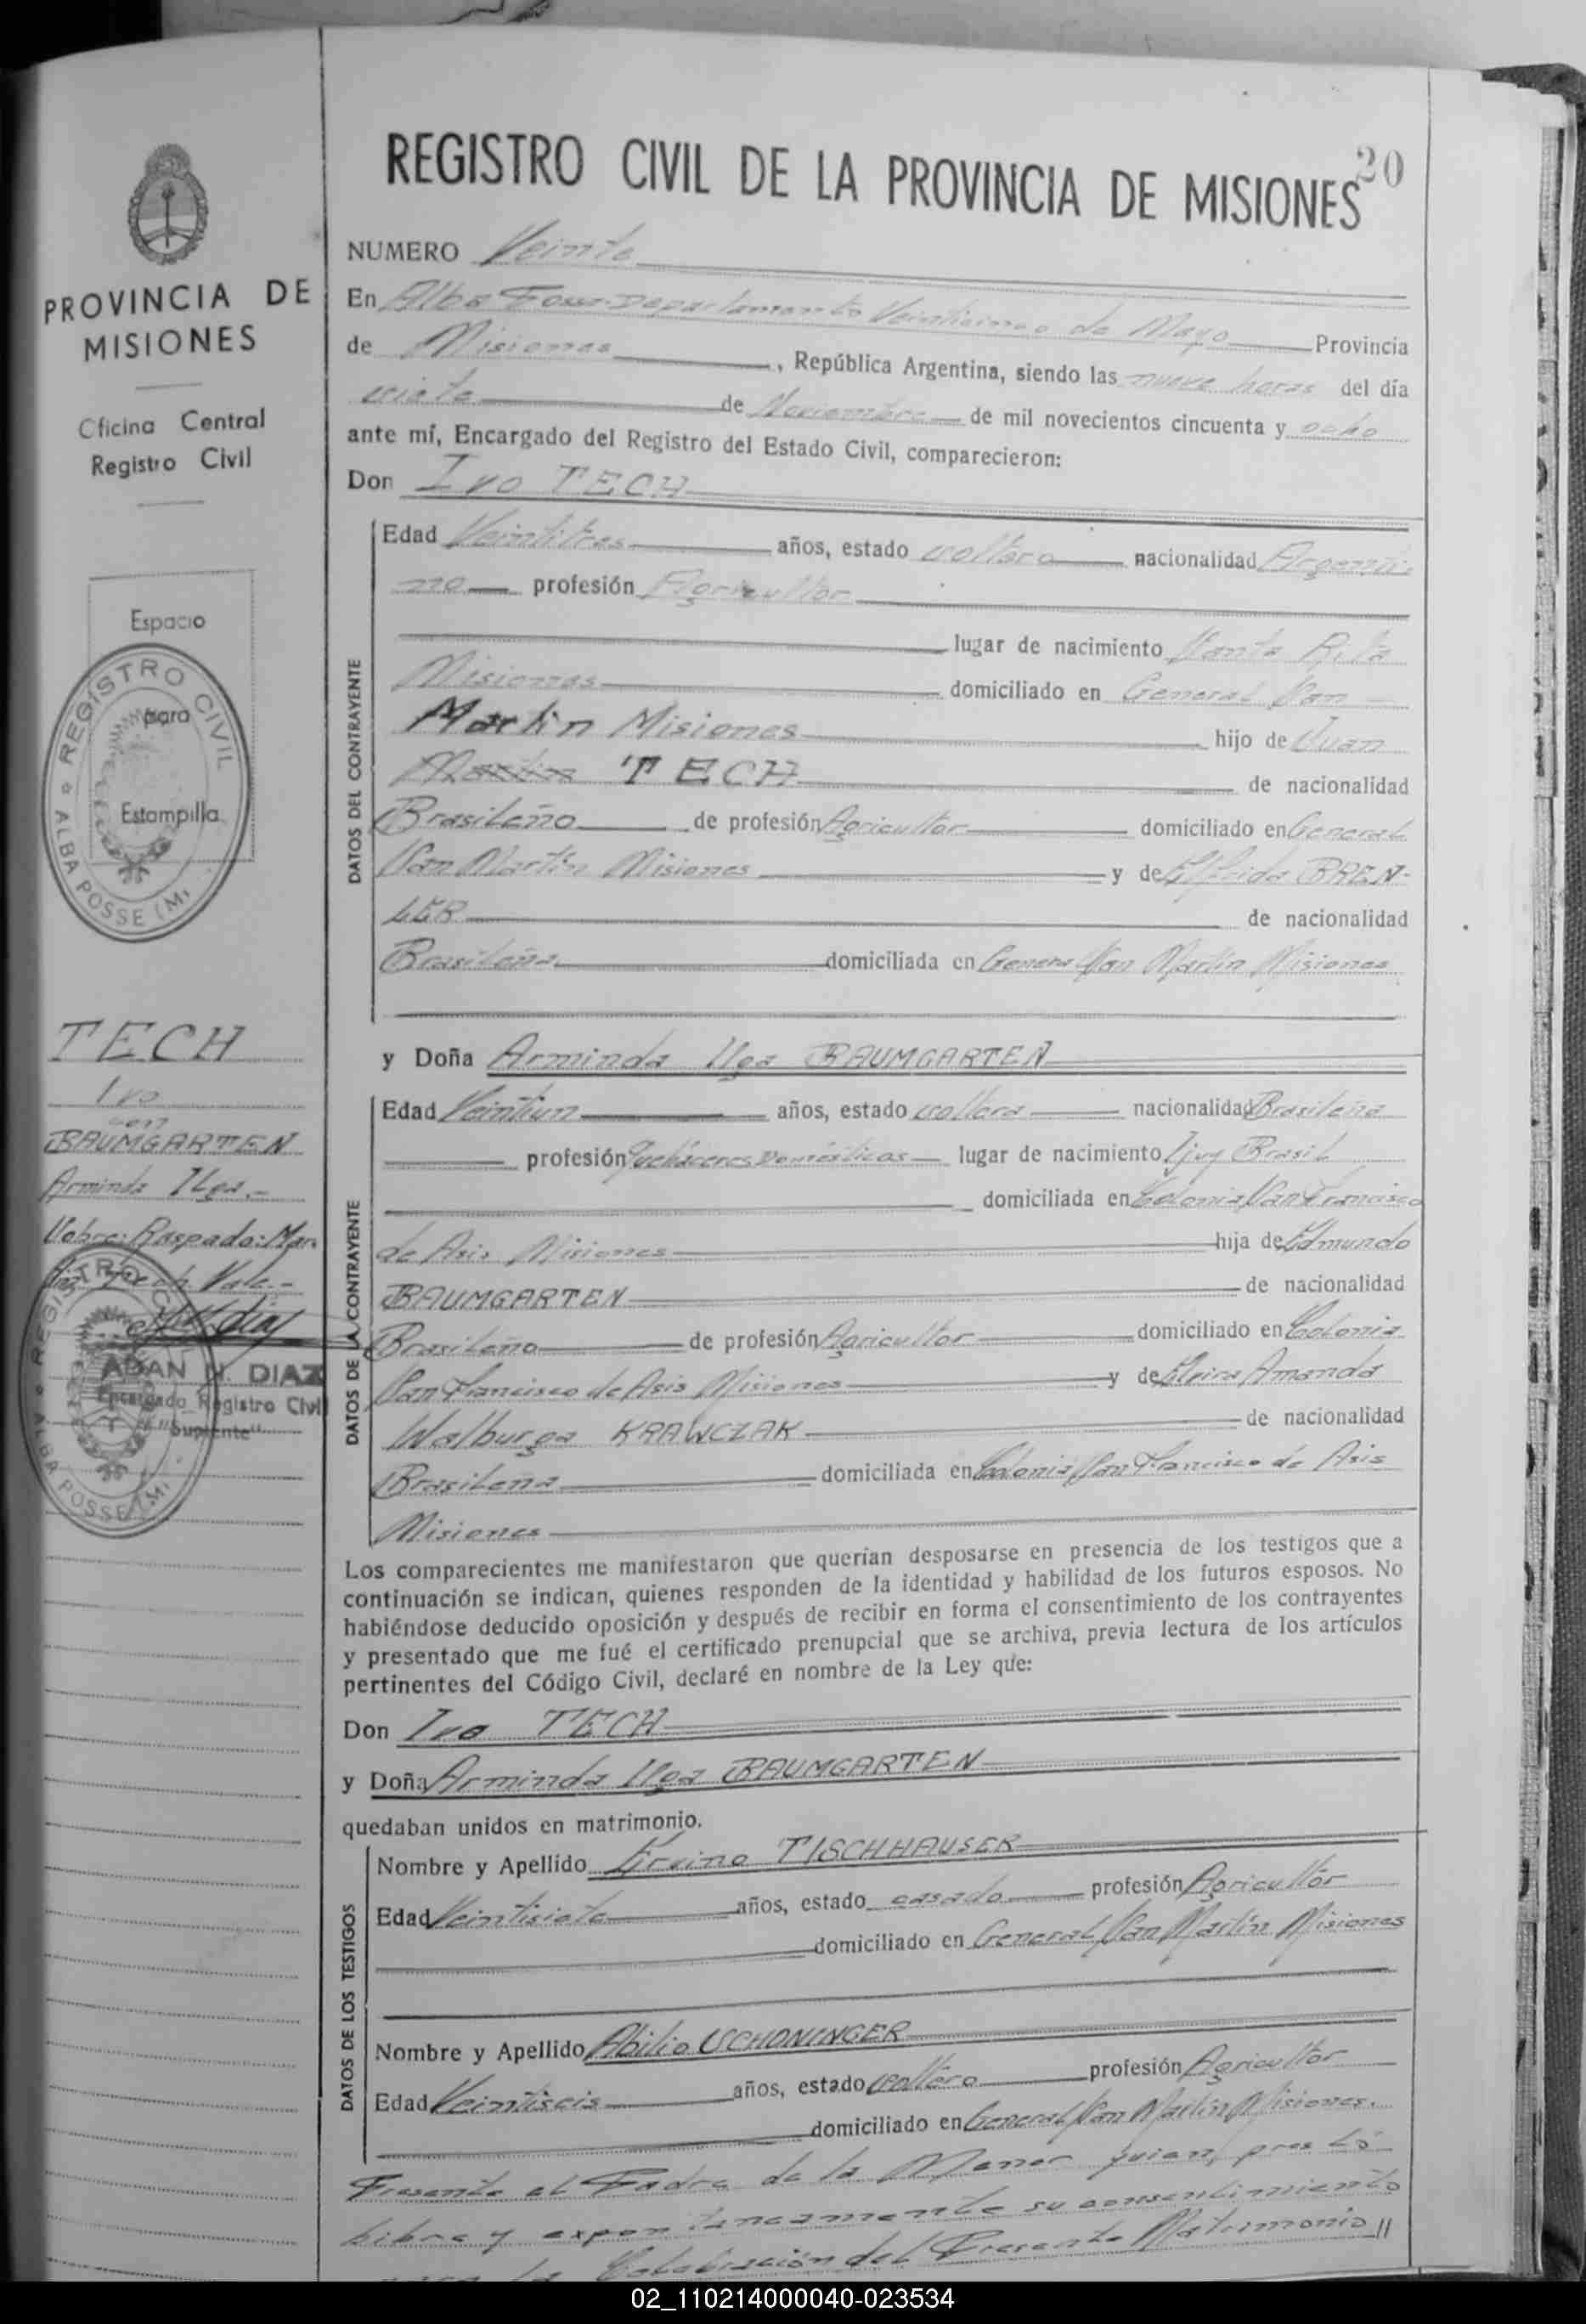 REGISTRO CIVIL DE LA PROVINCIA DE MISIONES
20
PROVINCIA DE
MISIONES
Oficina Central
Registro Civil
Espacio
para
Estampilla
REGISTRO CIVIL
ALBA POSSE (M
TECH
Ivo
con
BAUMGARTEN
Arminda Ilga.-
Sobre: Raspado: Mar-
tin Tech. Vale.-
REGISTRO C
ADAN N. DIAZ
Encargado Registro Civil
"Suplente"
ALBA POSSE (M
NUMERO Veinte
En Alba Posse Departamento Veinticinco de Mayo Provincia
de Misiones, República Argentina, siendo las nueve horas del día
siete de Noviembre de mil novecientos cincuenta y ocho
ante mí, Encargado del Registro del Estado Civil, comparecieron:
Don Ivo TECH
DATOS DEL CONTRAYENTE
Edad Veintitres años, estado soltero nacionalidad Argenti-
no profesión Agricultor
lugar de nacimiento Santa Rita
Misiones domiciliado en General San
Martin Misiones hijo de Juan
Martin TECH de nacionalidad
Brasileño de profesión Agricultor domiciliado en General
San Martín Misiones y de Elfrida BREN-
LER de nacionalidad
Brasileña domiciliada en General San Martin Misiones
y Doña Arminda Ilga BAUMGARTEN
DATOS DE LA CONTRAYENTE
Edad Veintiun años, estado soltera nacionalidad Brasileña
profesión Quehaceres Domésticos lugar de nacimiento Ijuy Brasil
domiciliada en Colonia San Francisco
de Asis Misiones hija de Edmundo
BAUMGARTEN de nacionalidad
Brasileño de profesión Agricultor domiciliado en Colonia
San Francisco de Asis Misiones y de Elvira Amanda
Walburga KRAWCZAK de nacionalidad
Brasileña domiciliada en Colonia San Francisco de Asis
Misiones
Los comparecientes me manifestaron que querían desposarse en presencia de los testigos que a
continuación se indican, quienes responden de la identidad y habilidad de los futuros esposos. No
habiéndose deducido oposición y después de recibir en forma el consentimiento de los contrayentes
y presentado que me fué el certificado prenupcial que se archiva, previa lectura de los artículos
pertinentes del Código Civil, declaré en nombre de la Ley que:
Don Ivo TECH
y Doña Arminda Ilga BAUMGARTEN
quedaban unidos en matrimonio.
DATOS DE LOS TESTIGOS
Nombre y Apellido Ervino TISCHHAUSER
Edad Veintisiete años, estado casado profesión Agricultor
domiciliado en General San Martín Misiones
Nombre y Apellido Abilio SCHONINGER
Edad Veintiseis años, estado soltero profesión Agricultor
domiciliado en General San Martin Misiones.
Presente el Padre de la Menor quien prestó
libre y expontaneamente su consentimiento
para la Celebración del Presente Matrimonio //
02_110214000040-023534